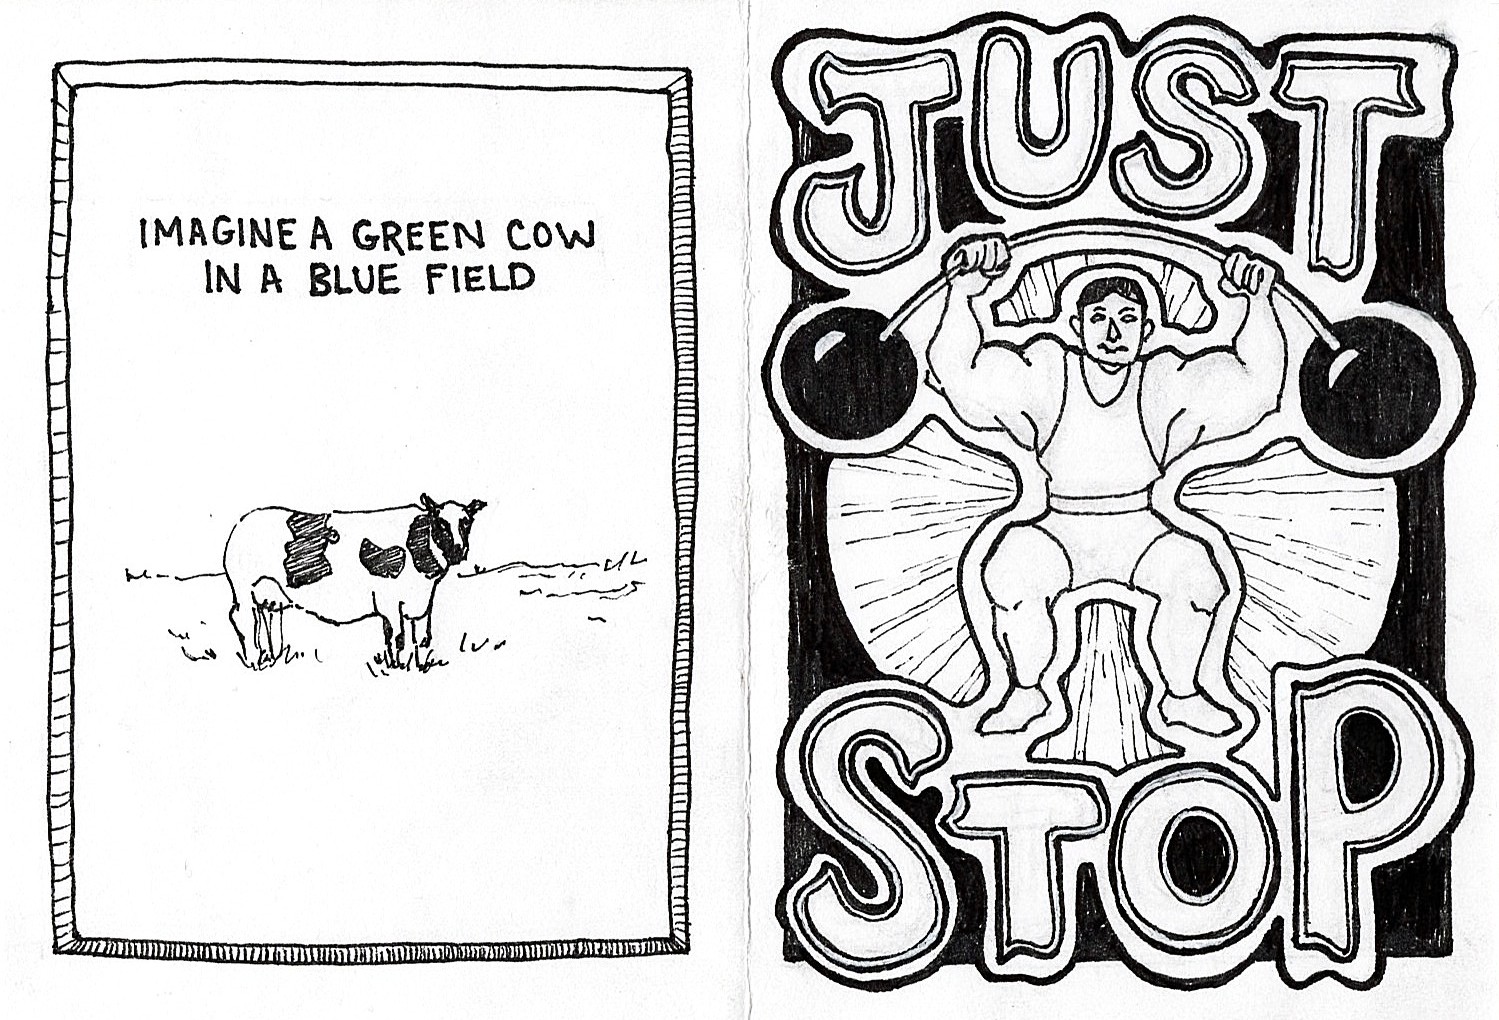 IMAGINE A GREEN COW
IN A BLUE FIELD
JUST
STOP